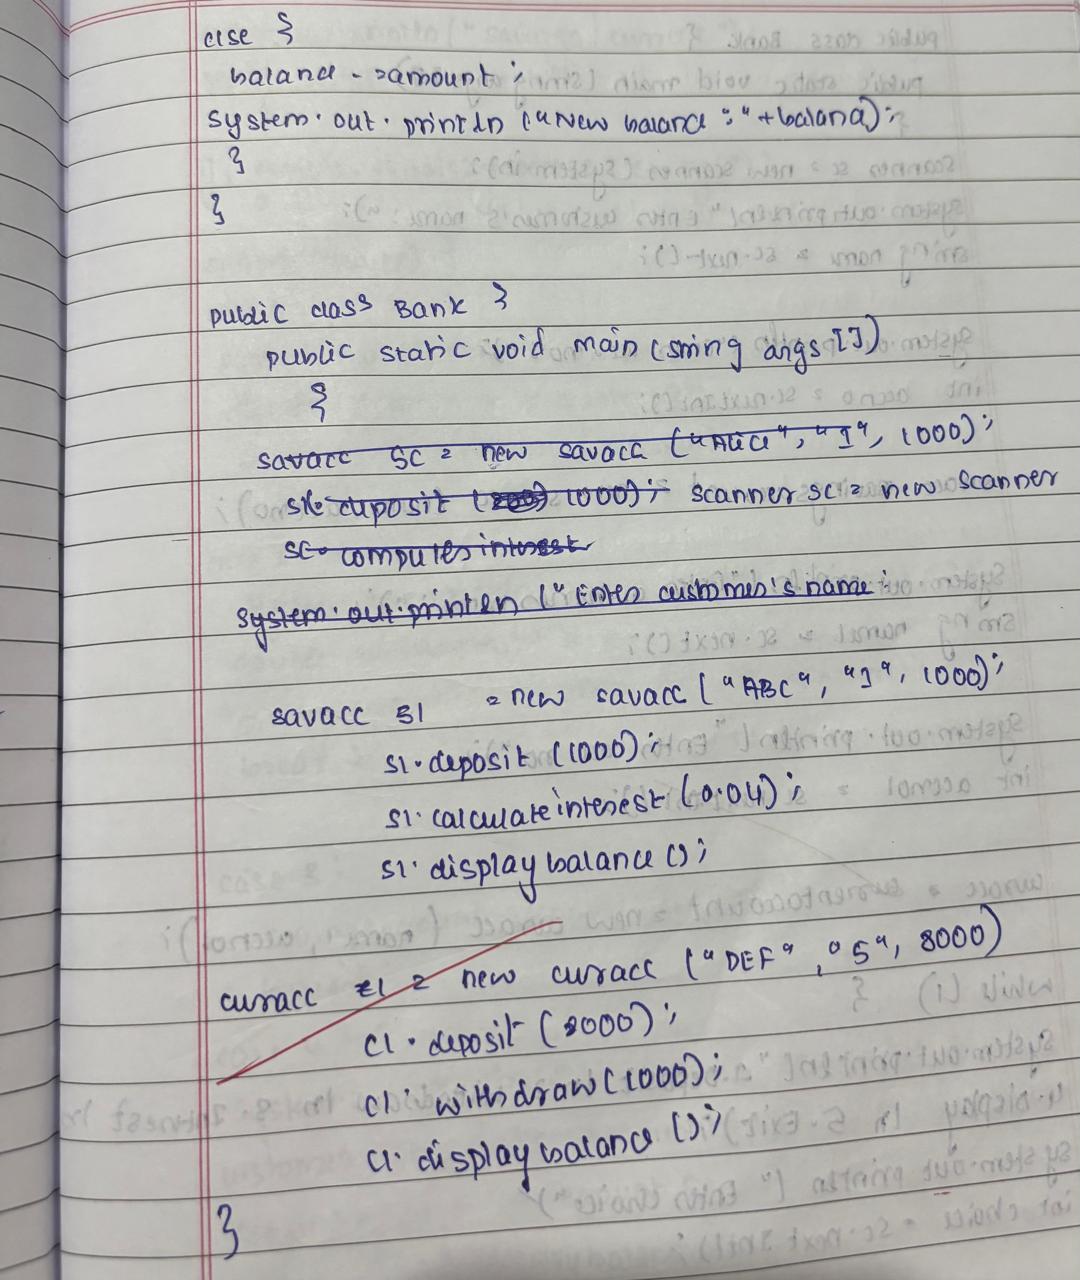 else {
balance -= amount ;
system.out.println ("New balance :" + balance);
}
}
public class Bank {
public static void main (string args [])
{
savacc sc = new savacc ("Alice", "1", 1000);
sc. deposit ( 1000); scanner sc = new scanner
sc. computes interest
system.out.println (" Enter customer's name :
savacc s1 = new savacc ( "ABC", "1", 1000);
s1.deposit (1000);
s1. calculate interest (0.04);
s1. display balance ();
curacc c1 = new curacc ("DEF", "5", 8000)
c1 . deposit (2000);
c1. withdraw (1000);
c1. display balance ();
}